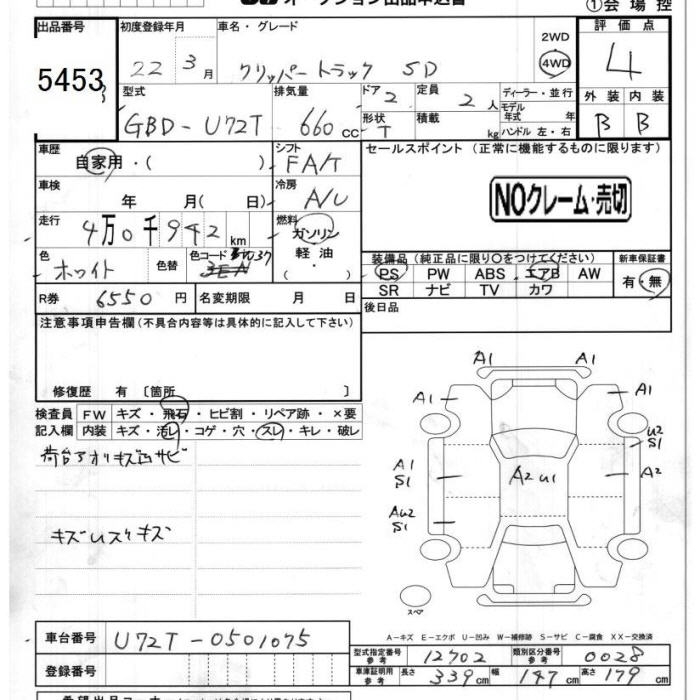 オークション出品申込書
①会場控
出品番号
5453
初度登録年月
22 3月
車名・グレード
クリッパートラック SD
2WD
4WD
評価点
4
型式
GBD-U72T
排気量
660cc
ドア 2
形状 T
定員 2人
積載 kg
ディーラー・並行
モデル年式 年
ハンドル 左・右
外装 内装
B B
車歴
自家用・( )
シフト
FA/T
セールスポイント (正常に機能するものに限ります)
NOクレーム・売切
車検
年 月( 日)
冷房
A/C
走行
4万0千942km
燃料
ガソリン
軽油
( ・ )
色
ホワイト
色替
色コード
装備品(純正品に限り○をつけてください)
PS PW ABS エアB AW
SR ナビ TV カワ
新車保証書
有・無
R券 6550円
名変期限 月 日
後日品
注意事項申告欄(不具合内容等は具体的に記入して下さい)
修復歴 有〔箇所 〕
検査員記入欄
FW キズ・飛石・ヒビ割・リペア跡・×要
内装 キズ・汚レ・コゲ・穴・スレ・キレ・破レ
荷台アオリキズ凹サビ
A1 A1
A1 A1
U2
S1
A1
S1
A2U1
A2
AU2
S1
スペア
A-キズ E-エクボ U-凹み W-補修跡 S-サビ C-腐食 XX-交換済
車台番号 U72T-0501075
登録番号
型式指定番号 参考 12702
類別区分番号 参考 0028
車庫証明用 参考 長さ 339cm 幅 147cm 高さ 179cm
希望出品コーナー